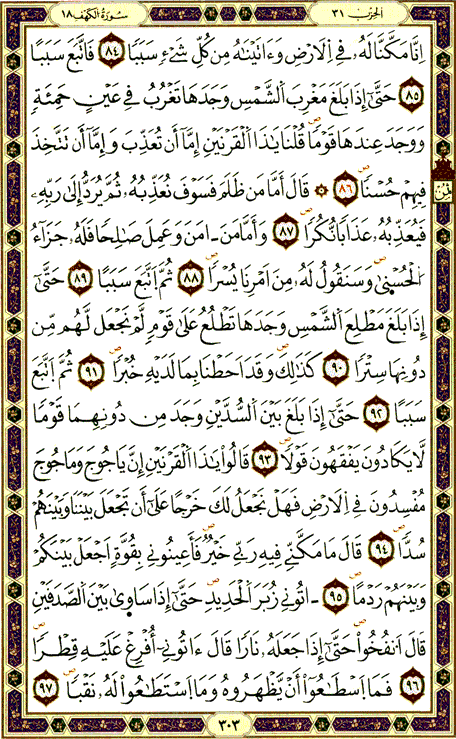 الحزب ٣١ سورة الكهف ١٨
إِنَّا مَكَّنَّا لَهُۥ فِے اِ۬لَارْضِ وَءَاتَيْنَٰهُ مِن كُلِّ شَےْءٍ سَبَبًا ٨٤ فَاتَّبَعَ سَبَبًا
٨٥ حَتَّىٰٓ إِذَا بَلَغَ مَغْرِبَ اَ۬لشَّمْسِ وَجَدَهَا تَغْرُبُ فِے عَيْنٍ حَمِئَةٍ
وَوَجَدَ عِندَهَا قَوْمًا قُلْنَا يَٰذَا اَ۬لْقَرْنَيْنِ إِمَّآ أَن تُعَذِّبَ وَإِمَّآ أَن تَتَّخِذَ
فِيهِمْ حُسْنًا ٨٦ ۞ قَالَ أَمَّا مَن ظَلَمَ فَسَوْفَ نُعَذِّبُهُۥ ثُمَّ يُرَدُّ إِلَىٰ رَبِّهِۦ
فَيُعَذِّبُهُۥ عَذَابًا نُّكُرًا ٨٧ وَأَمَّا مَنَ اٰمَنَ وَعَمِلَ صَٰلِحًا فَلَهُۥ جَزَآءُ
اُ۬لْحُسْنَىٰ وَسَنَقُولُ لَهُۥ مِنَ اَمْرِنَا يُسْرًا ٨٨ ثُمَّ اَ۪تَّبَعَ سَبَبًا ٨٩ حَتَّىٰٓ
إِذَا بَلَغَ مَطْلِعَ اَ۬لشَّمْسِ وَجَدَهَا تَطْلُعُ عَلَىٰ قَوْمٍ لَّمْ نَجْعَل لَّهُم مِّن
دُونِهَا سِتْرًا ٩٠ كَذَٰلِكَ وَقَدَ اَحَطْنَا بِمَا لَدَيْهِ خُبْرًا ٩١ ثُمَّ اَ۪تَّبَعَ
سَبَبًا ٩٢ حَتَّىٰٓ إِذَا بَلَغَ بَيْنَ اَ۬لسُّدَّيْنِ وَجَدَ مِن دُونِهِمَا قَوْمًا
لَّا يَكَادُونَ يَفْقَهُونَ قَوْلًا ٩٣ قَالُوا۟ يَٰذَا اَ۬لْقَرْنَيْنِ إِنَّ يَاجُوجَ وَمَاجُوجَ
مُفْسِدُونَ فِے اِ۬لَارْضِ فَهَلْ نَجْعَلُ لَكَ خَرْجًا عَلَىٰٓ أَن تَجْعَلَ بَيْنَنَا وَبَيْنَهُمْ
سُدًّا ٩٤ قَالَ مَا مَكَّنِّے فِيهِ رَبِّے خَيْرٌ فَأَعِينُونِے بِقُوَّةٍ اَجْعَلْ بَيْنَكُمْ
وَبَيْنَهُمْ رَدْمًا ٩٥ اٰتُونِے زُبَرَ اَ۬لْحَدِيدِ حَتَّىٰٓ إِذَا سَاوَىٰ بَيْنَ اَ۬لصَّدَفَيْنِ
قَالَ اَ۟نفُخُوا۟ حَتَّىٰٓ إِذَا جَعَلَهُۥ نَارًا قَالَ ءَاتُونِےٓ أُفْرِغْ عَلَيْهِ قِطْرًا
٩٦ فَمَا اَ۪سْطَٰعُوٓا۟ أَنْ يَّظْهَرُوهُ وَمَا اَ۪سْتَطَٰعُوا۟ لَهُۥ نَقْبًا ٩٧
٣٠٣